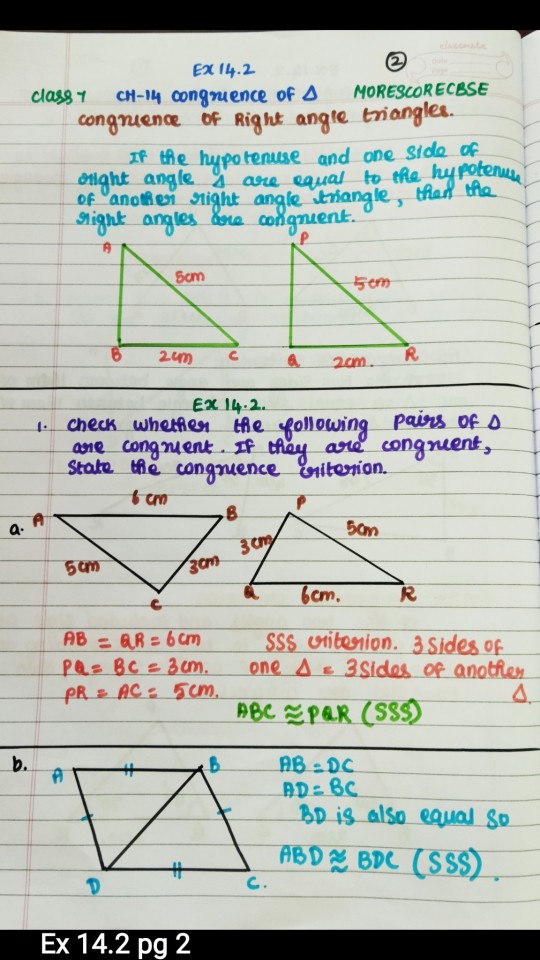 classmate
Ex 14.2
②
Class 7 CH-14 congruence of Δ MORESCORECBSE
congruence of Right angle triangles.
If the hypotenuse and one side of
right angle Δ are equal to the hypotenuse
of another right angle triangle, then the
right angles are congruent.
A
5cm
B
2cm
C
P
5cm
Q
2cm.
R
Ex 14.2.
1. check whether the following pairs of Δ
are congruent. If they are congruent,
State the congruence criterion.
a.
A
6 cm
B
5cm
3cm
C
P
3cm
5cm
Q
6cm.
R
AB = QR = 6cm
PQ = BC = 3cm.
PR = AC = 5cm.
SSS criterion. 3 Sides of
one Δ = 3 Sides of another
Δ.
ABC ≅ PQR (SSS)
b.
A
B
D
C.
AB = DC
AD = BC
BD is also equal so
ABD ≅ BDC (SSS).
Ex 14.2 pg 2